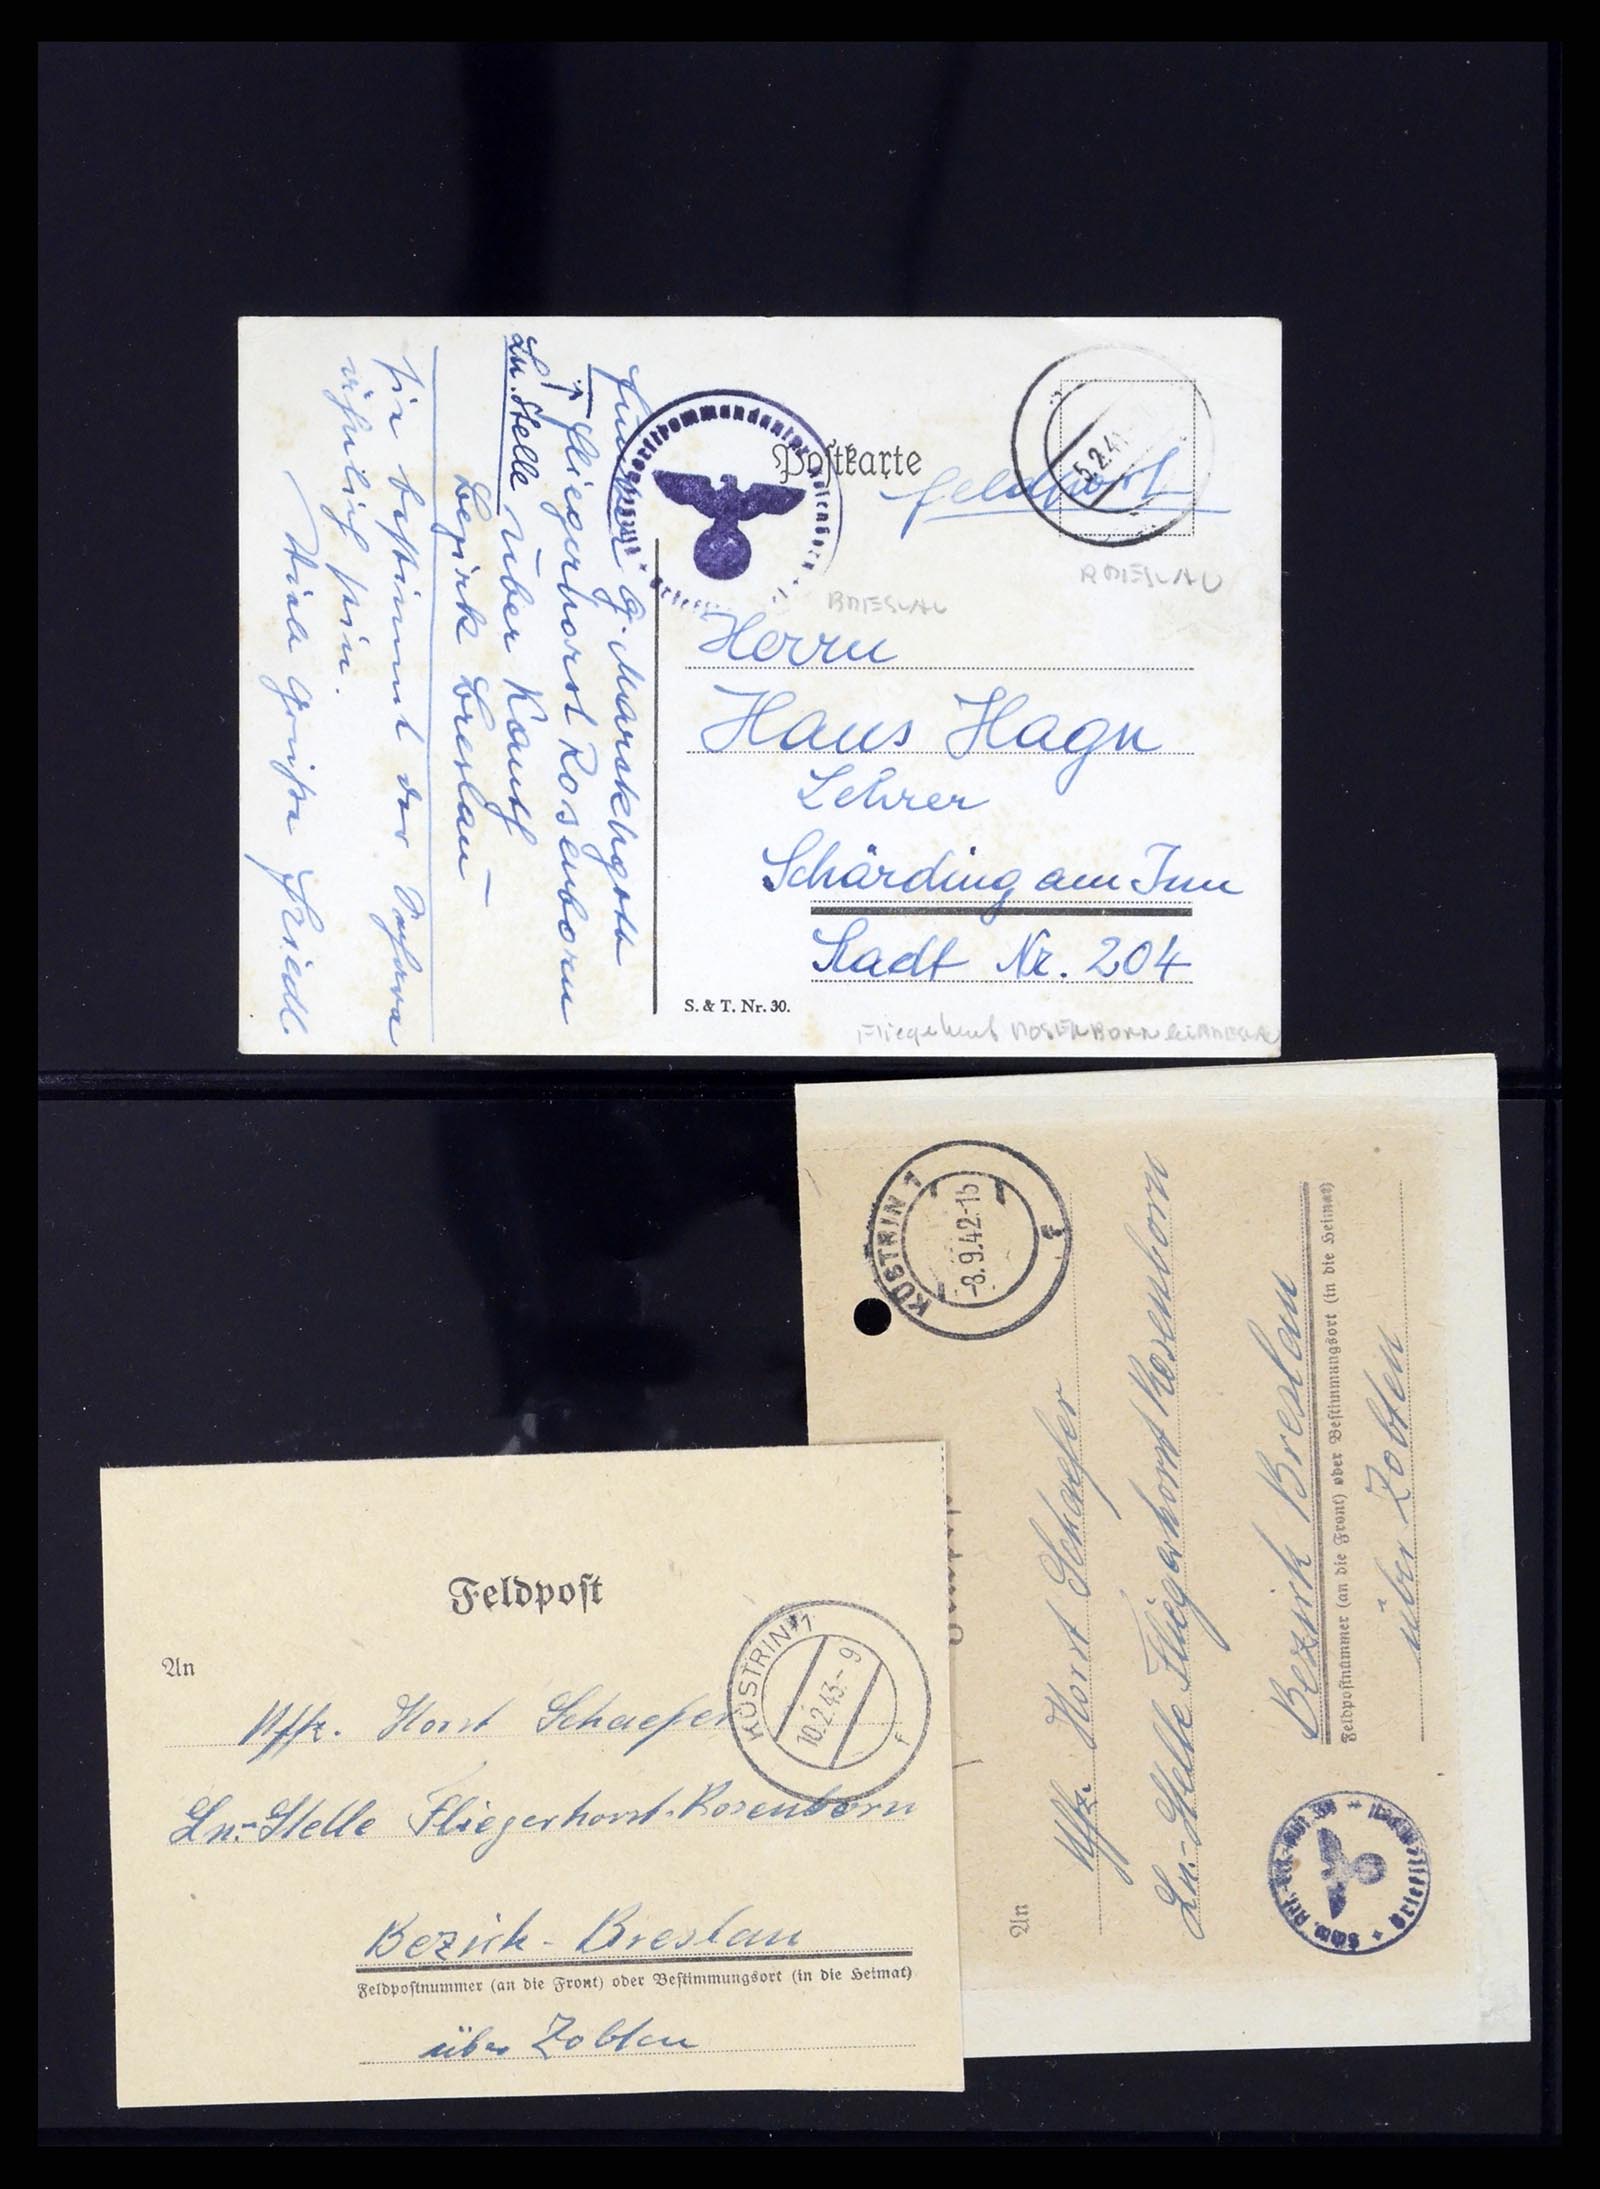 Postkarte
Feldpost
5.2.41
BRESLAU
BRESLAU
Herrn
Hans Hagn
Lehrer
Schärding am Inn
Stadt Nr. 204
S. & T. Nr. 30.
Fliegerhorst ROSENBORN
G. Marschgott
Fliegerhorst Rosenborn
Ln. Stelle über Kanth
Bezirk Breslau
bestimmt der
sein.
Friedl.
KÜSTRIN 1
-8.9.42.-16
f
An
Uffz. Horst Schaefer
Ln.-Stelle Fliegerhorst Rosenborn
Bezirk Breslau
Feldpostnummer (an die Front) oder Bestimmungsort (in die Heimat)
über Zobten
Briefstempel
Feldpost
KÜSTRIN 1
10.2.43.- 9
f
An
Uffz. Horst Schaefer
Ln.-Stelle Fliegerhorst-Rosenborn
Bezirk-Breslau
Feldpostnummer (an die Front) oder Bestimmungsort (in die Heimat)
über Zobten